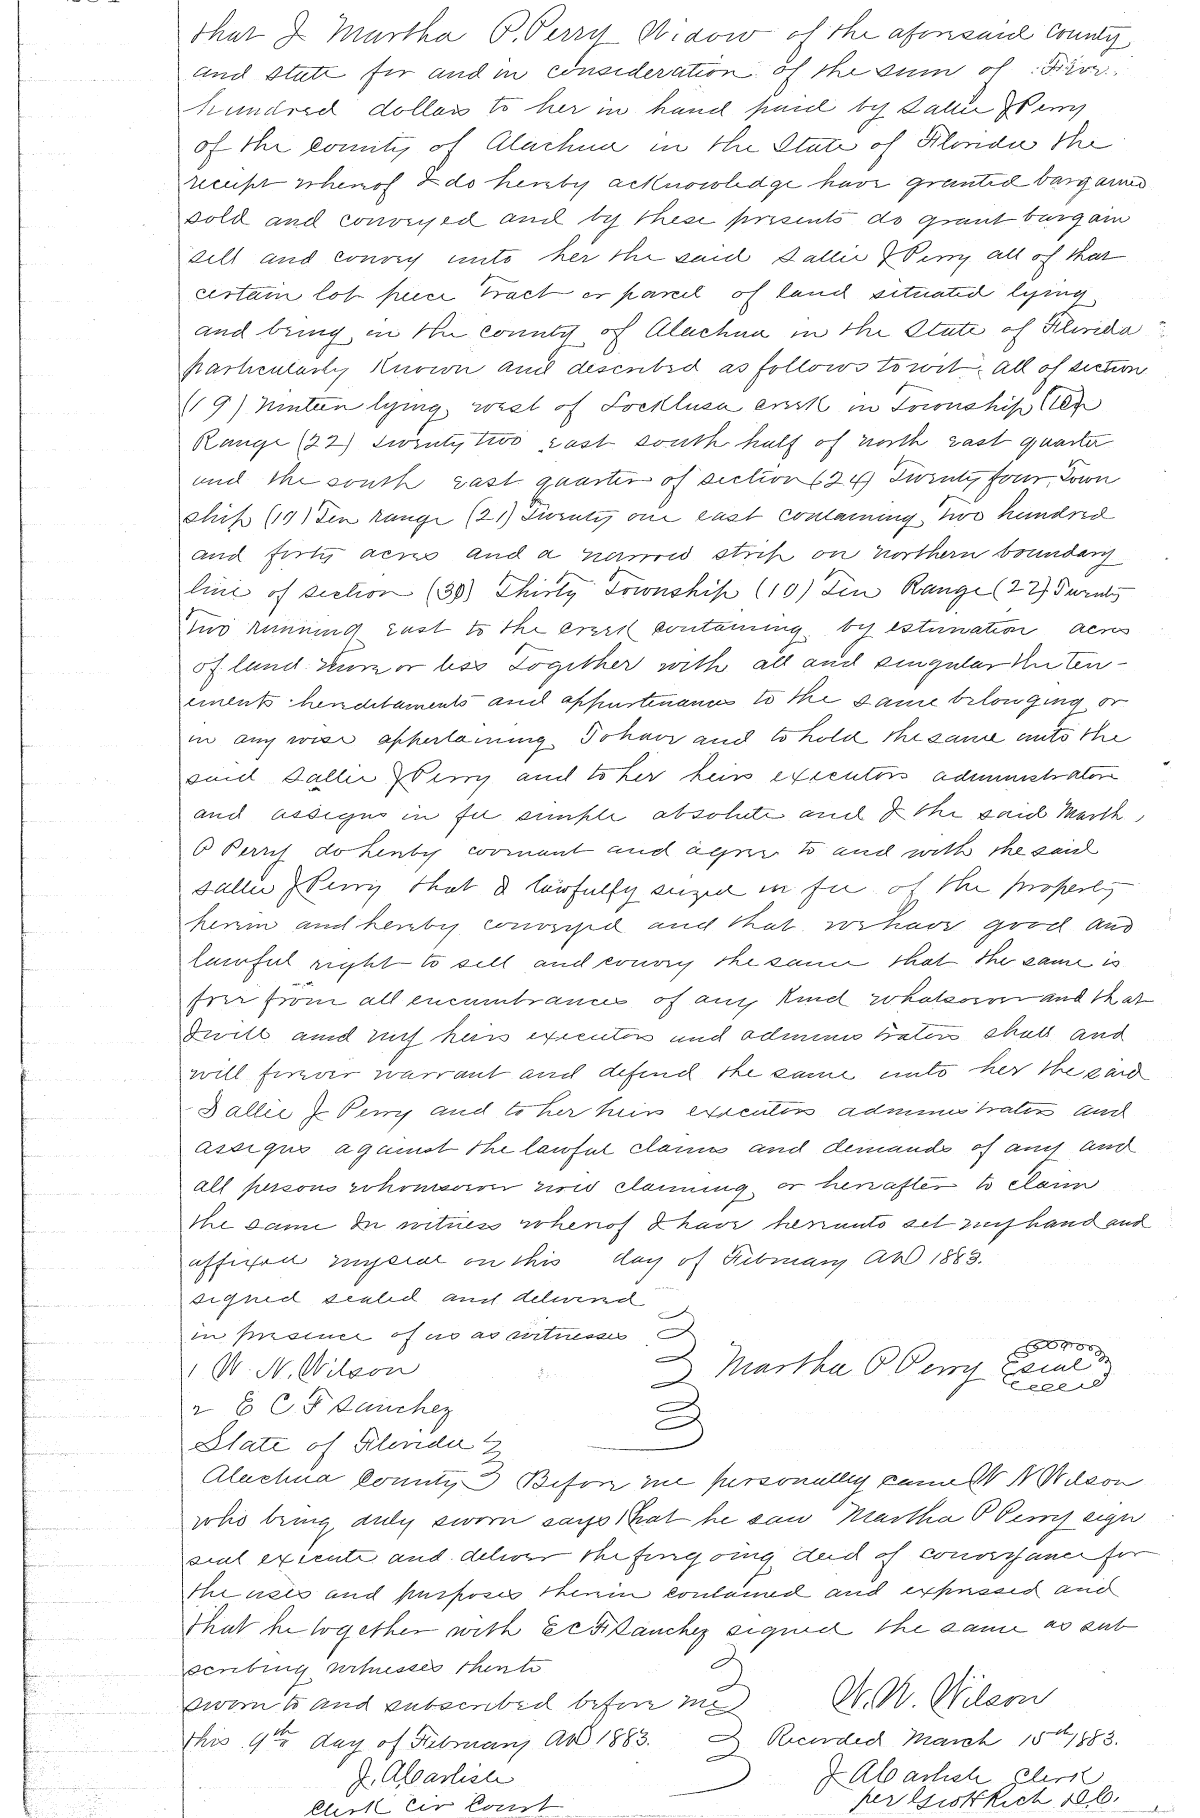 that I Martha P. Perry Widow of the aforesaid County
and state for and in consideration of the sum of Five
hundred dollars to her in hand paid by Sallie J Perry
of the county of Alachua in the State of Florida the
receipt whereof I do hereby acknowledge have granted bargained
sold and conveyed and by these presents do grant bargain
sell and convey unto her the said Sallie J Perry all of that
certain lot piece tract or parcel of land situated lying
and being in the county of Alachua in the State of Florida
particularly known and described as follows to wit: all of section
(19) Ninteen lying west of Locklusa creek in Township (10)
Range (22) twenty two east south half of north east quarter
and the south east quarter of section (24) Twenty four, Town
ship (10) Ten range (21) Twenty one east containing two hundred
and forty acres and a narrow strip on northern boundary
line of section (30) Thirty Township (10) Ten Range (22) Twenty
two running east to the creek containing by estimation acres
of land more or less Together with all and singular the ten-
ements hereditaments and appurtenances to the same belonging or
in any wise appertaining To have and to hold the same unto the
said Sallie J Perry and to her heirs executors administrators
and assigns in fee simple absolute and I the said Marth
P Perry do hereby covenant and agree to and with the said
Sallie J Perry that I lawfully seized in fee of the property
herein and hereby conveyed and that we have good and
lawful right to sell and convey the same that the same is
free from all encumbrances of any kind whatsoever and that
I will and my heirs executors and administrators shall and
will forever warrant and defend the same unto her the said
Sallie J Perry and to her heirs executors administrators and
assigns against the lawful claims and demands of any and
all persons whomsoever now claiming or hereafter to claim
the same In witness whereof I have hereunto set my hand and
affixed my seal on this day of February AD 1883.
signed sealed and delivered
in presence of us as witnesses
1 W. N. Wilson
Martha P Perry seal
2 E C F Sanchez
State of Florida
Alachua County Before me personally came W N Wilson
who being duly sworn says that he saw Martha P Perry sign
seal execute and deliver the foregoing deed of conveyance for
the uses and purposes therein contained and expressed and
that he together with E C F Sanchez signed the same as sub
scribing witnesses thereto
sworn to and subscribed before me W. N. Wilson
this 9th day of February AD 1883. Recorded March 15th 1883.
J. A Carlisle J A Carlisle Clerk
Clerk Cir Court per D.C.